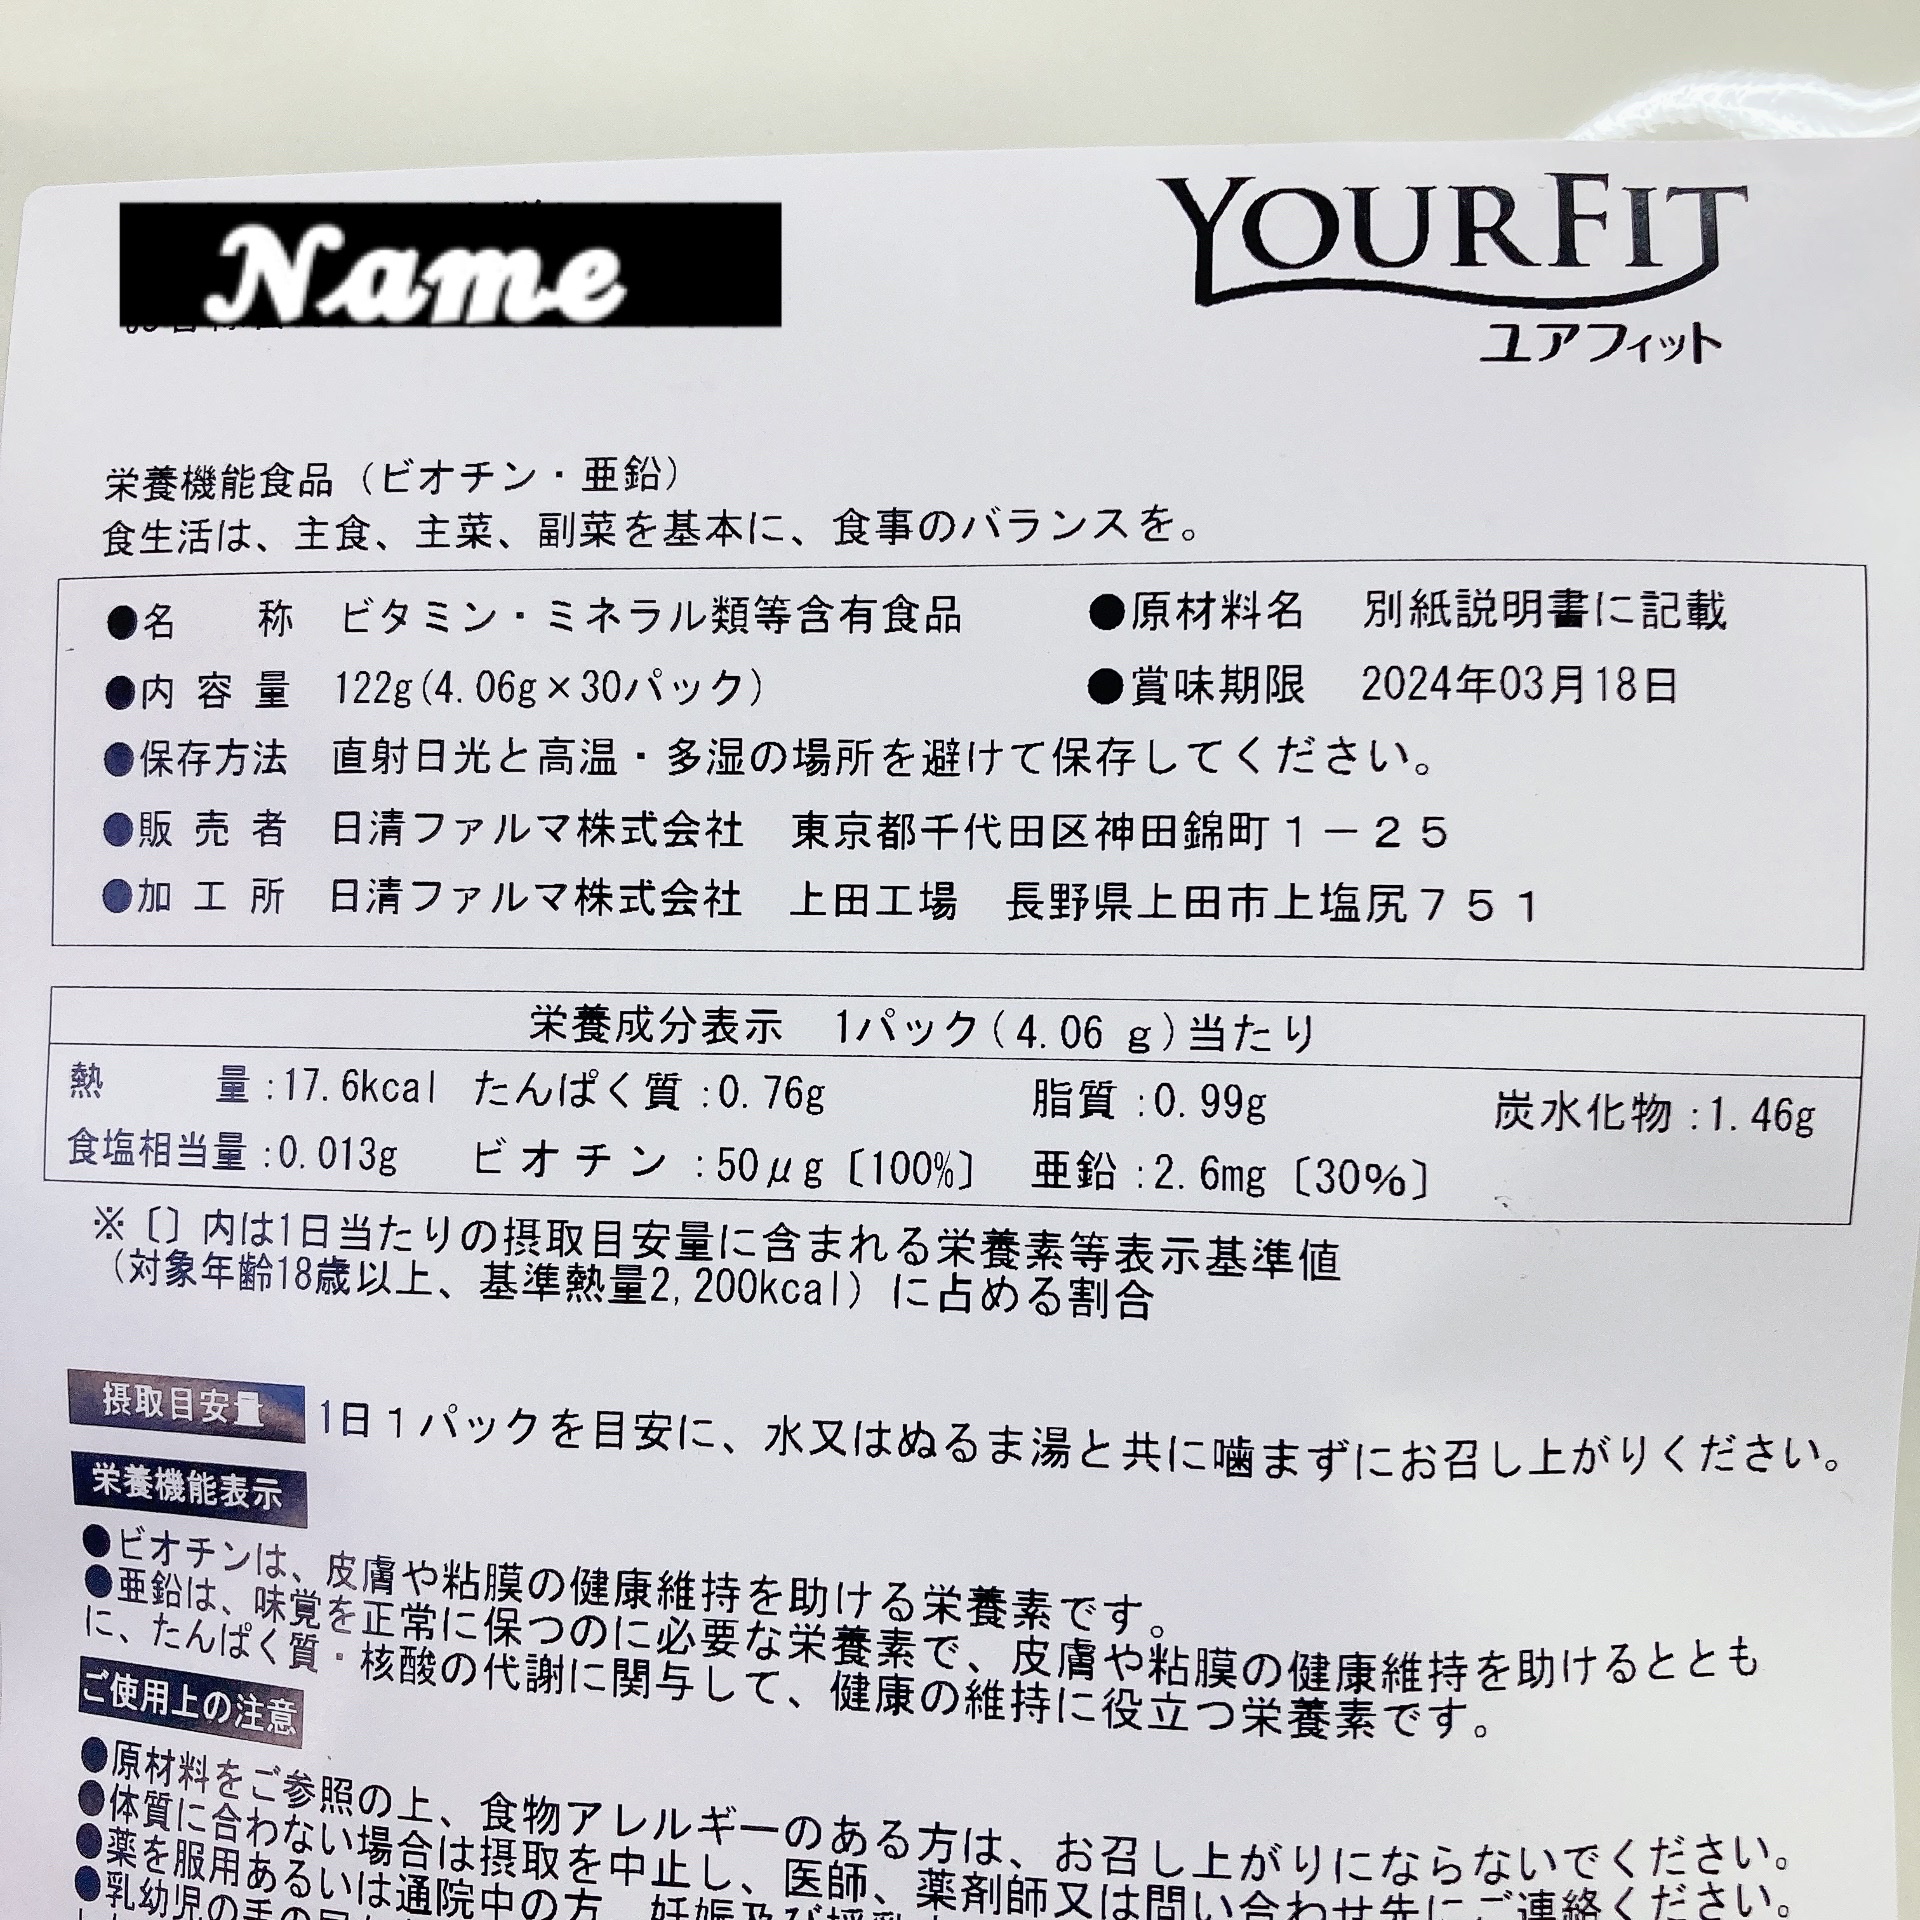 Name
YOURFIT
ユアフィット
栄養機能食品（ビオチン・亜鉛）
食生活は、主食、主菜、副菜を基本に、食事のバランスを。
●名　称　ビタミン・ミネラル類等含有食品　●原材料名　別紙説明書に記載
●内容量　122g(4.06g×30パック)　●賞味期限　2024年03月18日
●保存方法　直射日光と高温・多湿の場所を避けて保存してください。
●販売者　日清ファルマ株式会社　東京都千代田区神田錦町１－２５
●加工所　日清ファルマ株式会社　上田工場　長野県上田市上塩尻７５１
栄養成分表示　1パック(4.06 g)当たり
熱　量:17.6kcal　たんぱく質:0.76g　脂質:0.99g　炭水化物:1.46g
食塩相当量:0.013g　ビオチン:50μg〔100%〕　亜鉛:2.6mg〔30%〕
※〔〕内は1日当たりの摂取目安量に含まれる栄養素等表示基準値
（対象年齢18歳以上、基準熱量2,200kcal）に占める割合
摂取目安量　1日１パックを目安に、水又はぬるま湯と共に噛まずにお召し上がりください。
栄養機能表示
●ビオチンは、皮膚や粘膜の健康維持を助ける栄養素です。
●亜鉛は、味覚を正常に保つのに必要な栄養素で、皮膚や粘膜の健康維持を助けるととも
に、たんぱく質・核酸の代謝に関与して、健康の維持に役立つ栄養素です。
ご使用上の注意
●原材料をご参照の上、食物アレルギーのある方は、お召し上がりにならないでください。
●体質に合わない場合は摂取を中止し、医師、薬剤師又は問い合わせ先にご連絡ください。
●薬を服用あるいは通院中の方、妊娠及び授乳
●乳幼児の手の